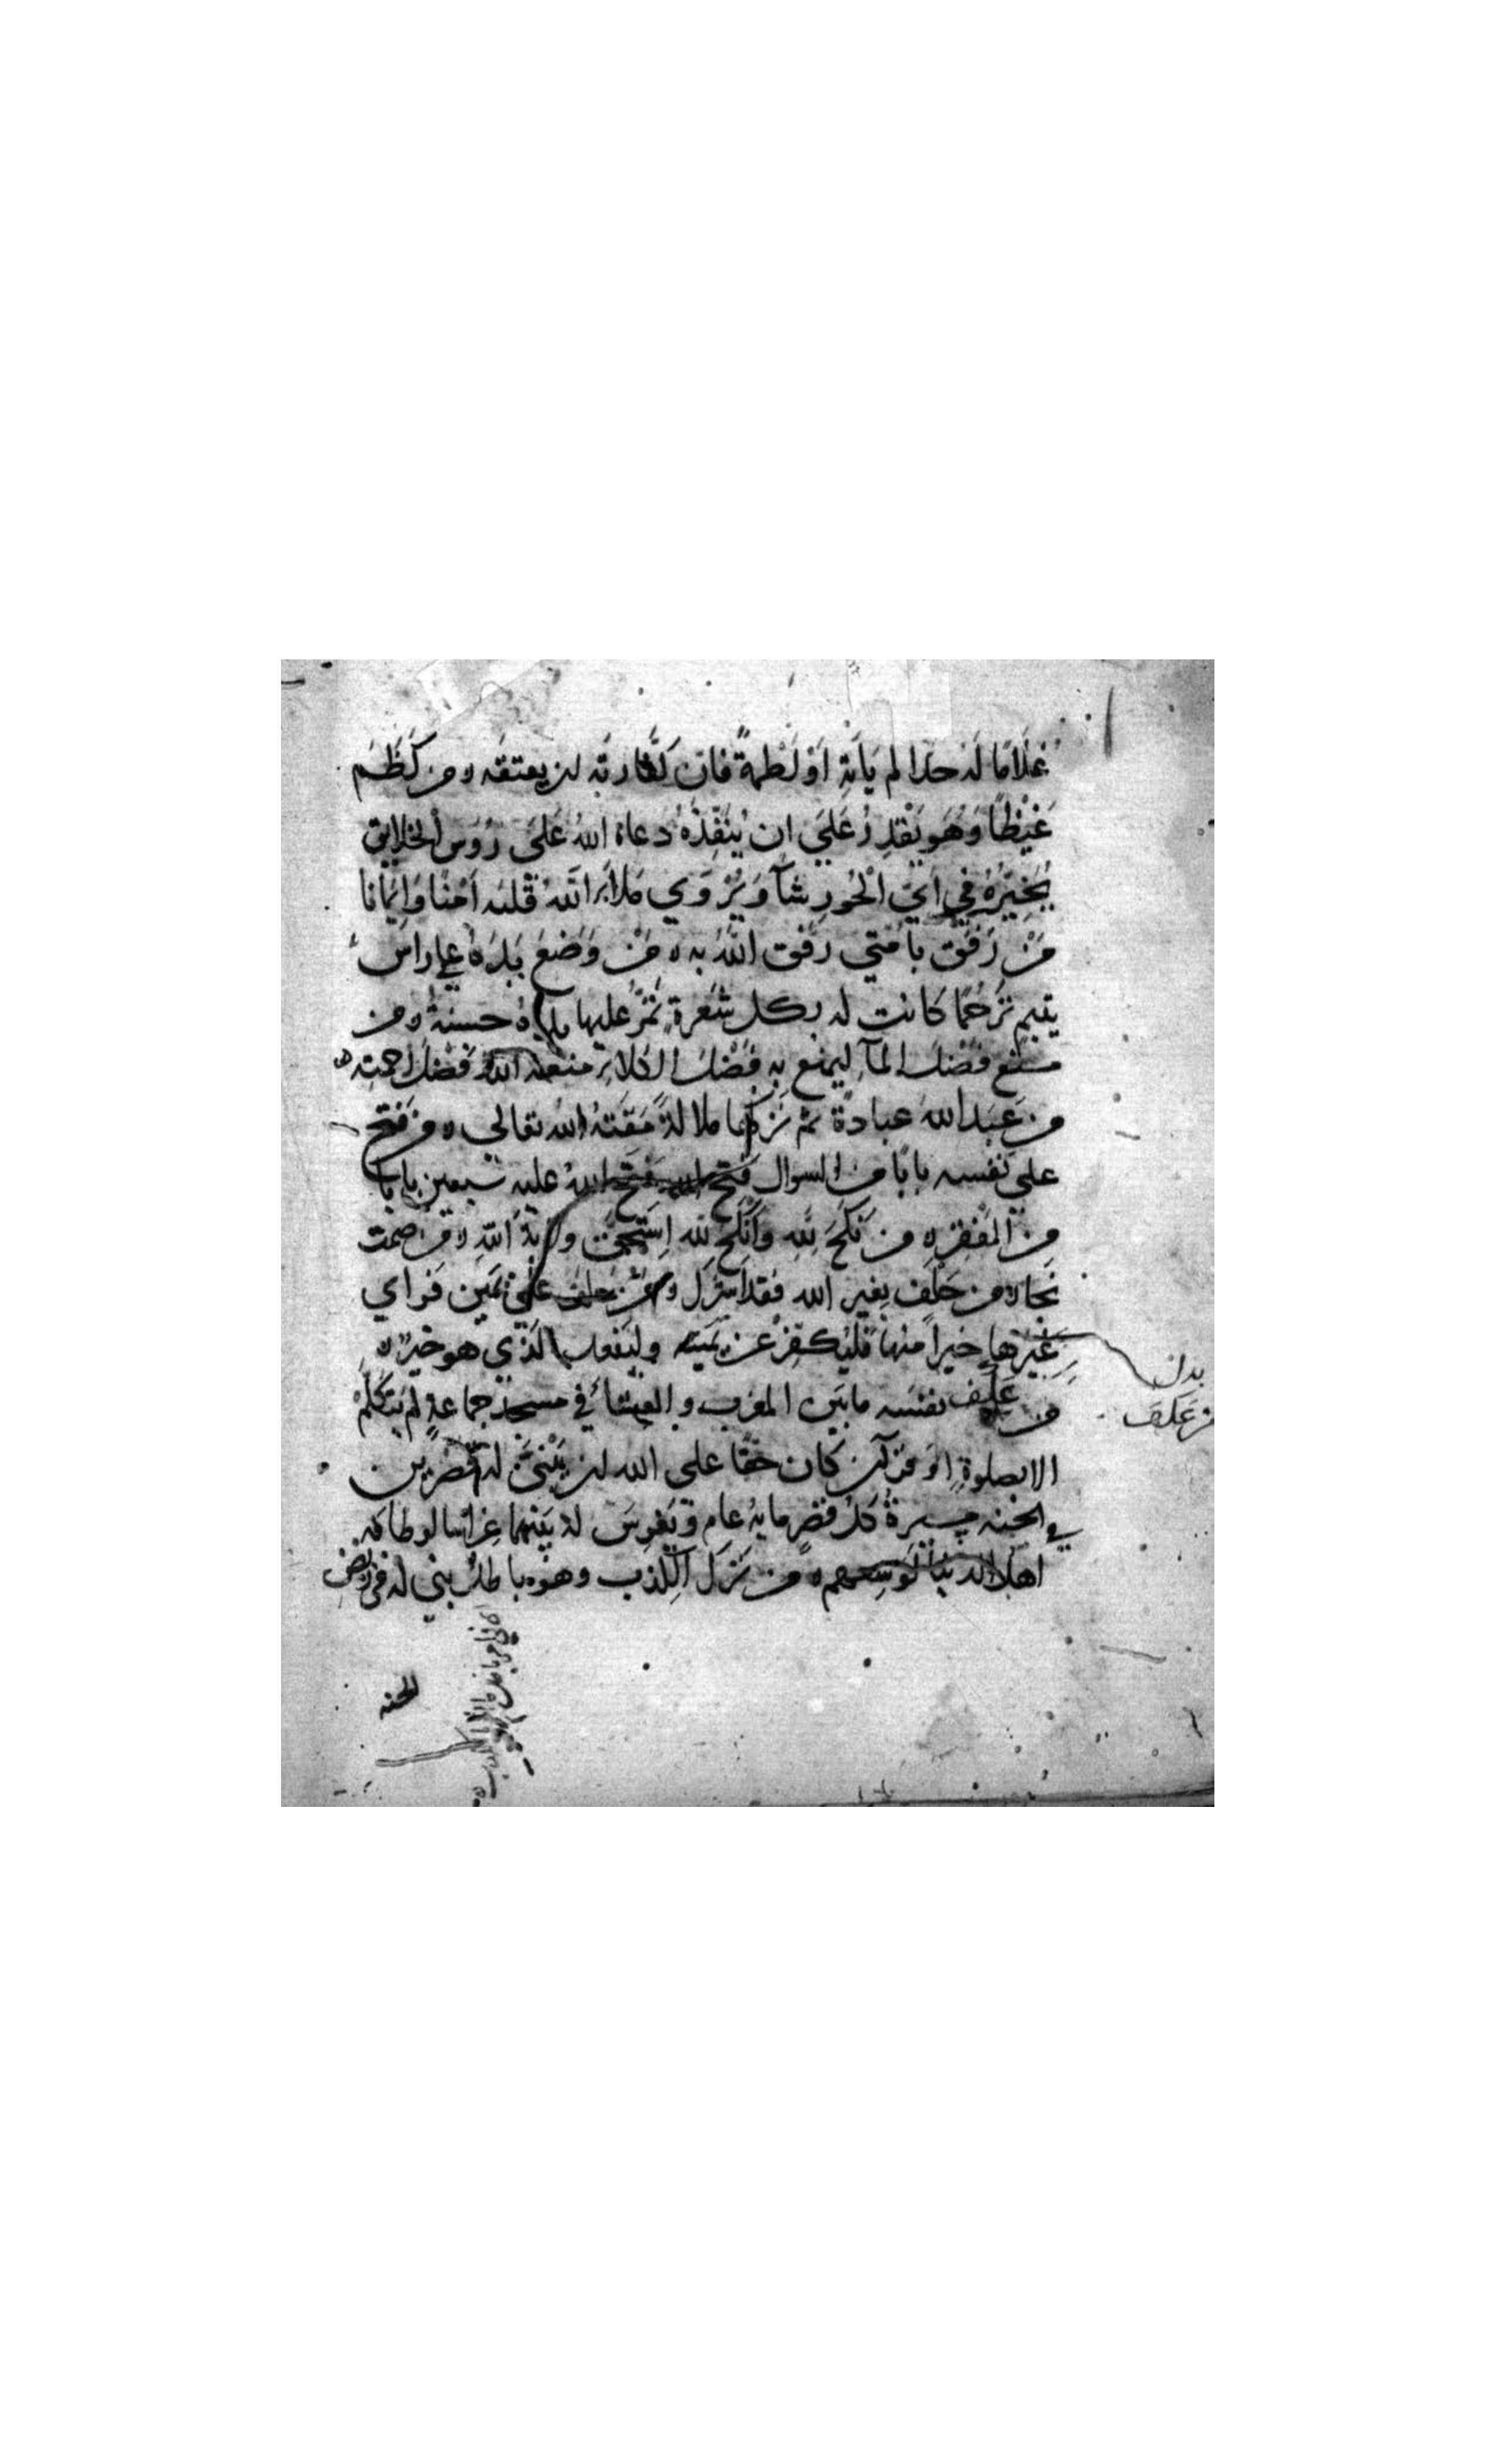 غُلَامًا لَهُ حدا لم يَأتِهِ اَوْ لَطْمَةً فان كَفَّارتَه ان يعتقَه ه من كَظَمَ
غَيْظًا وَهُو يَقْدِرُ عَلَي ان يُنفِذَهُ دعاهُ اللهُ عَلَى رُوس الخلايق
يُخَيِّرُهُ في اَيّ الْحُورِ شآ وَيُرْوَي مَلاَ اللهُ قَلْبَه اَمْنًا وَاِيمَانا
مَنْ رَفَقَ بِأمَّتي رفق اللهُ به ه مَنْ وَضَعَ يَدَهُ علي راس
يتيم تَرَحُّمًا كانت له بكل شَعرة تَمُرُّ عليها يده حسنةٌ ه من
منع فَضْلَ المآ ليمنع بِهِ فَضْلَ الكلاء منعه اللهُ فَضْلَ رحمته ه
من عَبَدَ اللهَ عبادةً ثم تركها ملالةً مَقَتَهُ الله تعالي ه من فَتح
علي نفسه بابًا من السوال فَتَح الله فَتَح اللهُ عليه سبعين بابا
من الفَقر ه من نَكَحَ لِلّهِ وَاَنْكَحَ لله اِسْتَحَقَّ ولايةَ اللهِ ه من صمت
نجا ه من حَلَف بغير الله فقد اشرك ومن حلف علي يمين فراي
غَيْرَها خيراً منها فليُكفِّرْ عن يَمينه وليَفعل الذي هو خيرٌ ه
بدل
من عَكَفَ
من عَكَف نفسَه ما بَين المغرب و العِشاء في مسجد جماعةٍ لم يتكلمْ
الا بصلوةٍ او قرآن كان حَقًّا على الله ان يَبْنيَ له قصرين
في الجنه مسيرةُ كل قصر مايةُ عام ويَغرِسَ له بَينهما غِراسا لو طافه
اهل الدنيا لَوَسِعهم ه من تَرَكَ الكَذب وهو باطل بني له في ربض
الجنه